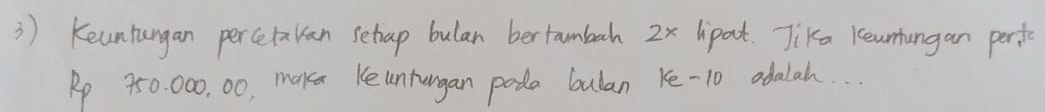 3) Keuntungan percetakan setiap bulan bertambah 2x lipat. Jika keuntungan
Rp 750.000,00, maka keuntungan pada bulan ke-10 adalah...